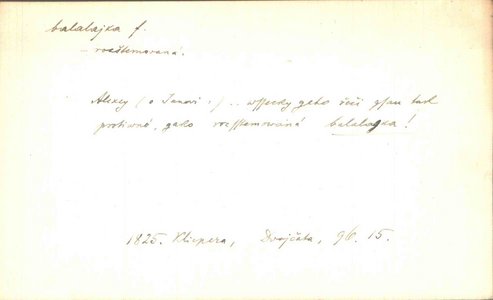 balalajka f.
– rozštemovaná.
Alexey (o Janovi :) .. wffecky geho řeči gsau tak
protivné, gako rozfftemowaná balalagka!
1825. Klicpera, Dvojčata, 15.